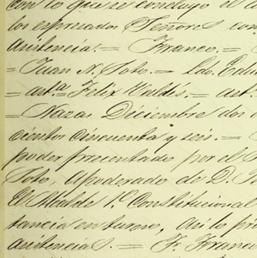 con lo que se concluyó el a
los expresados Señores con
asistencia.= Franco.=
=Juan N. Soto.= Ldo. Edu
=art.a Felix Valdes.= art.
=Nazas Diciembre dos d
cientos cincuenta y seis.=
poder presentado por el S
Soto, apoderado de D. J
El Alcalde 1.º Constitucional
tancia en turno, así lo pr
asistencias.= F. Franco